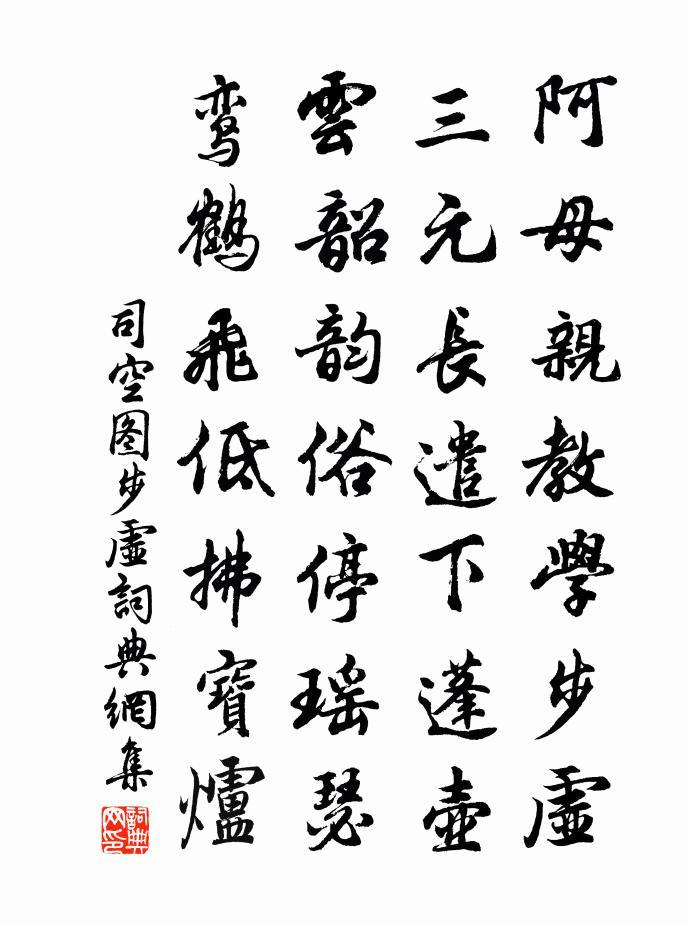 阿母親教學步虛
三元長遣下蓬壺
雲韶韵俗停瑶瑟
鸾鶴飛低拂寶爐
司空图步虛詞典網集
詞典网印